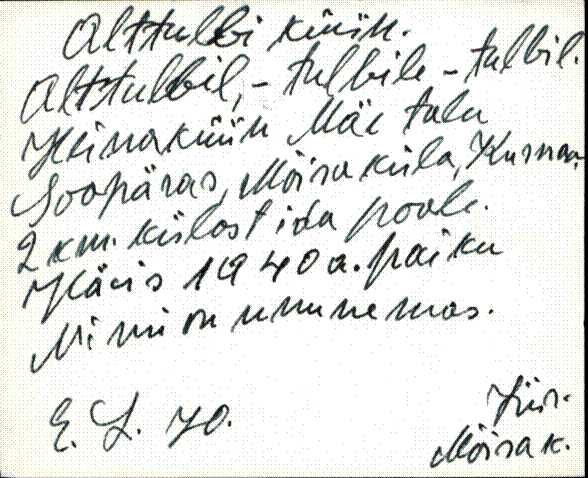 Alttulbi küün.
Alttulbil, - tulbile - tulbil.
Heinaküün Mäe talu
Soopäras, Mõisaküla, Kusnaa,
2 km. külast ida poole.
Hävis 1940 a. paiku
Nimi on ununemas.
E. L. 70.
Jür.
Mõisa k.